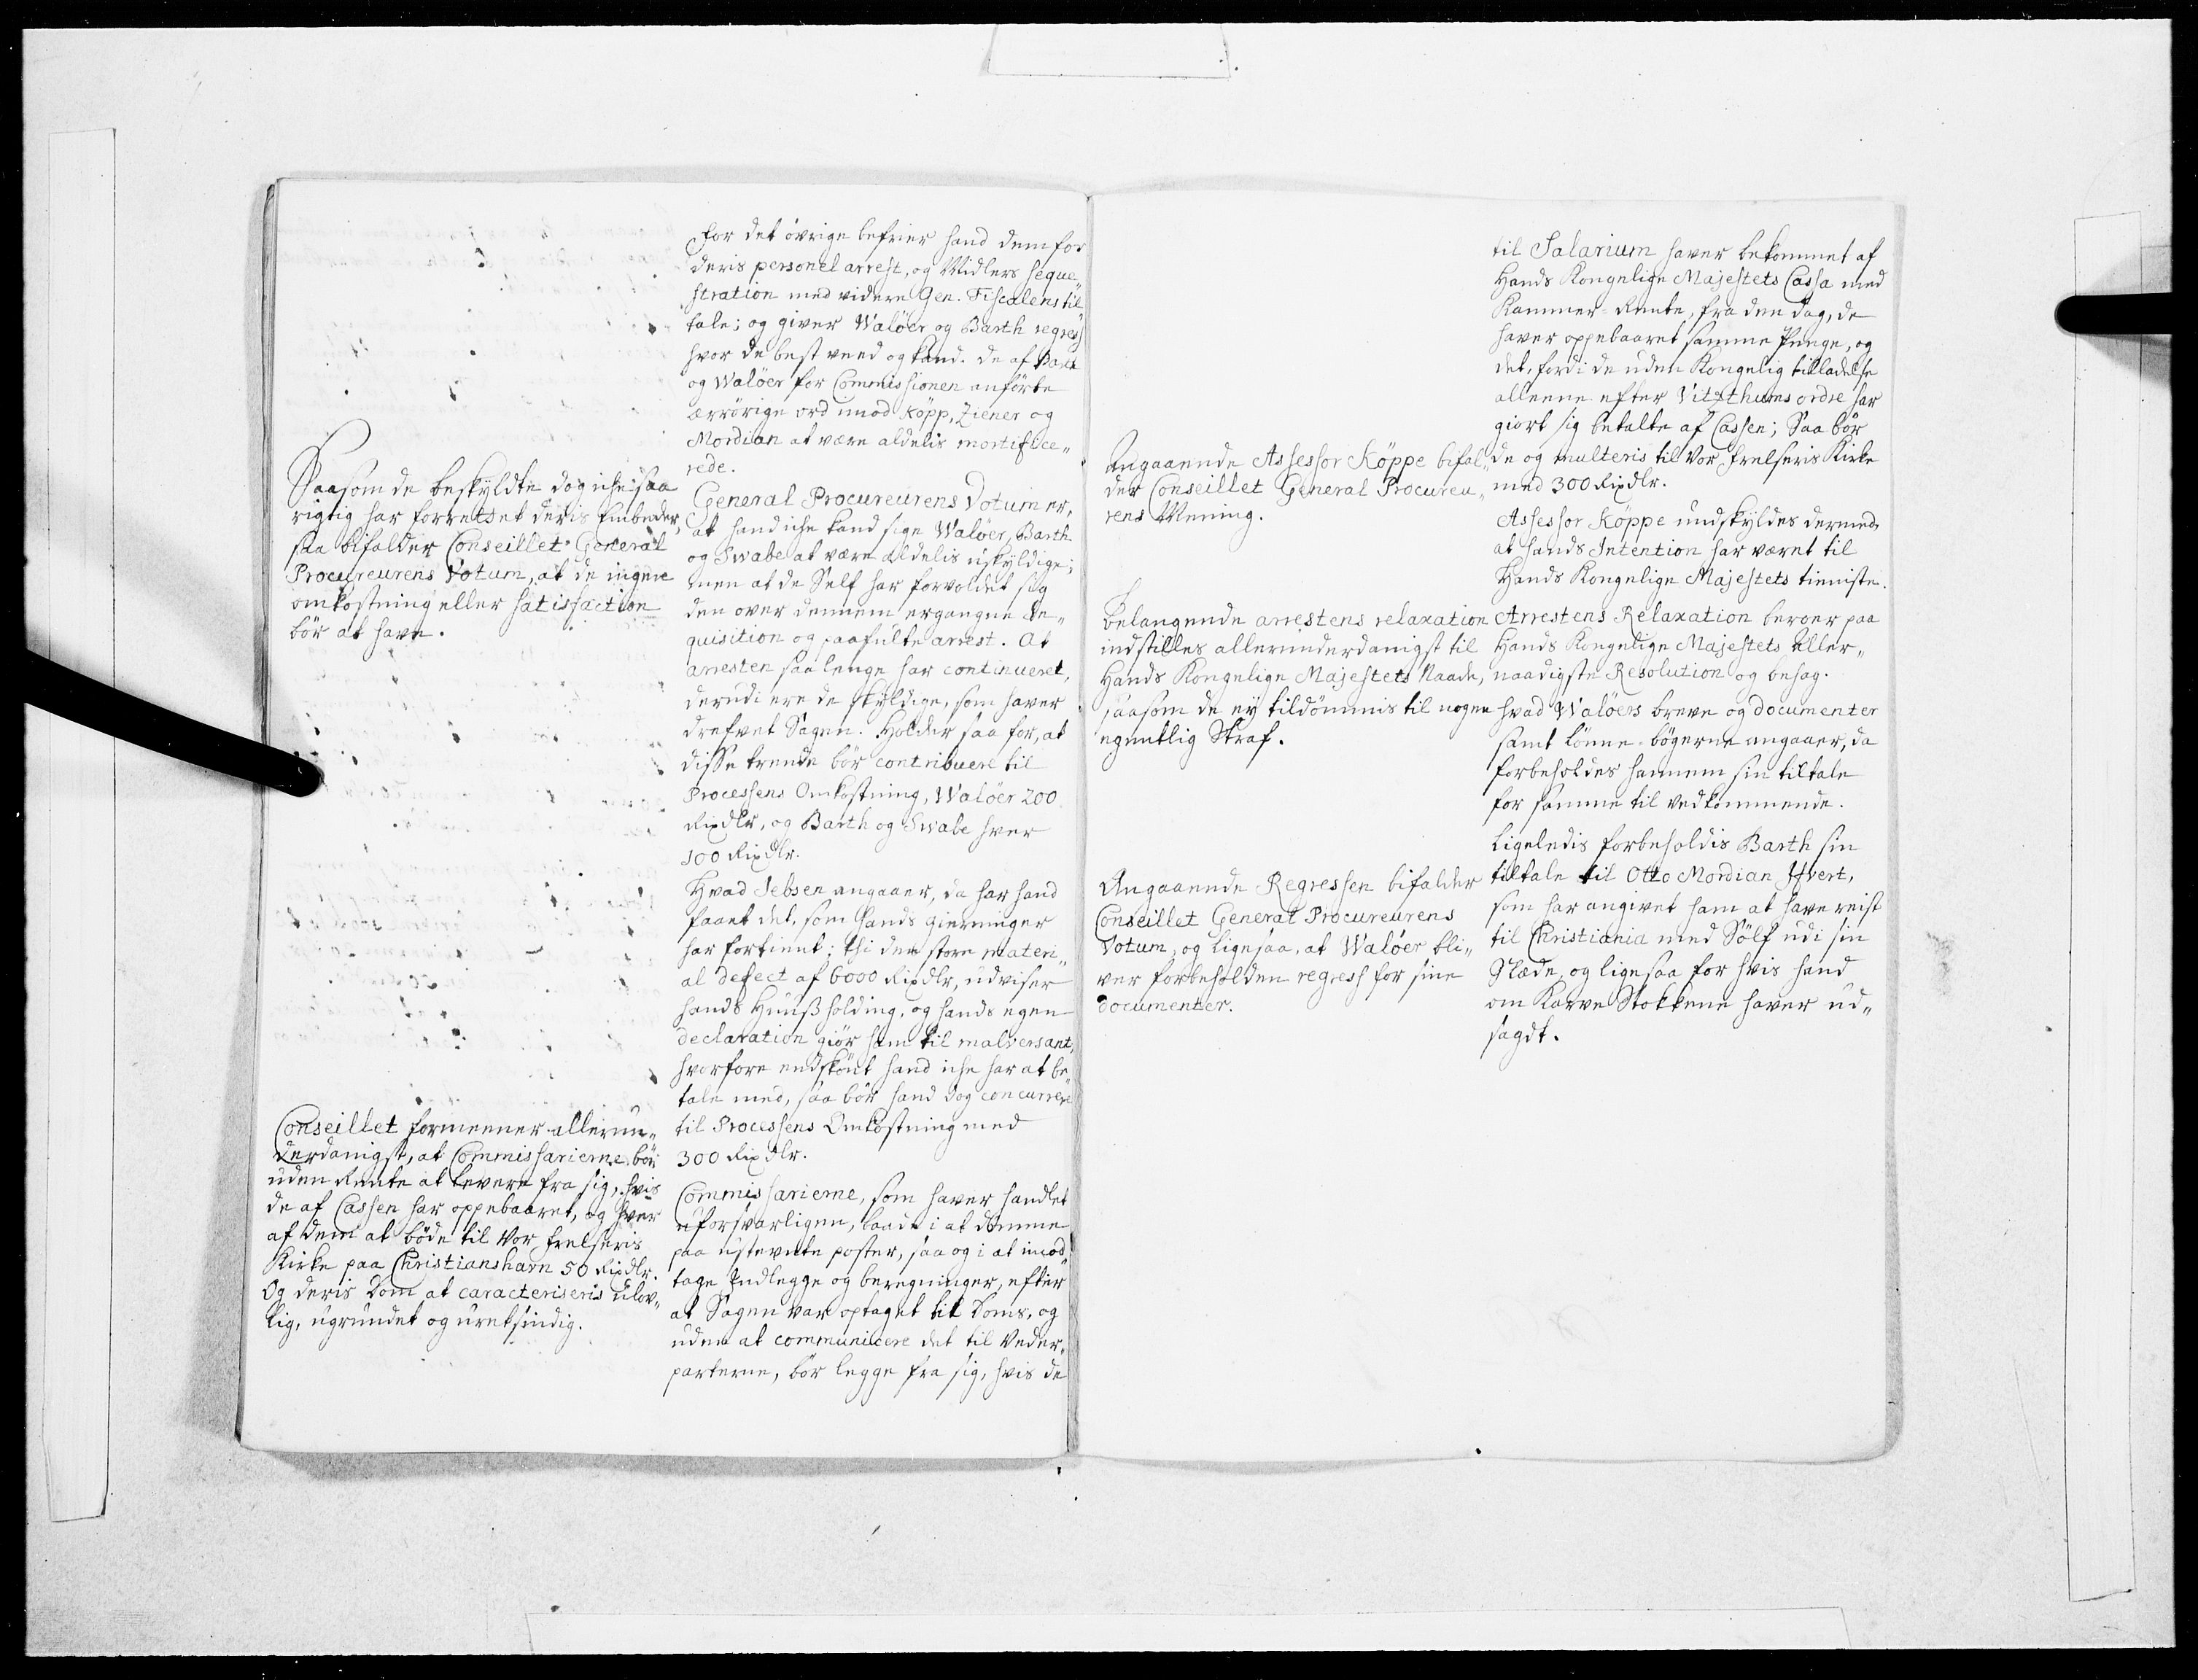 Saasom de beskyldte dog iche saa
rigtig har forrettet deris Embeder,
saa bifalder Conseillet General
Procureurens Votum, at de ingen
omkostning eller satisfaction
bör at have.
Conseillet formeener allerun„
derdanigst, at Commissarierne bör
uden Rente at levere fra sig, hvis
de af Cassen har oppebaaret, og hver
af dem at böde til Vor Frelseris
Kirke paa Christianshavn 50 Rixdlr.
Og deris Dom at caracteriseris ulov„
lig, ugrundet og uretsindig.
For det övrige befrier hand dem for
deris personel arrest, og Midlers seque„
stration med videre Gen. Fiscalens til„
tale; og giver Walöer og Barth regress
hvor de best veed og kand. De af Barth
og Walöer for Commissionen anförte
ærrörige ord imod Köpp, Ziener og
Mordian at være aldelis mortifice„
rede.
General Procureurens Votum er,
at hand iche kand sige Walöer, Barth
og Swabe at være aldelis uskyldige;
men at de Self har forvoldet sig
den over dennem ergangne In„
quisition og paafulte arrest. At
arresten saa lenge har continueret,
derudi ere de skyldige, som haver
drefvet Sagen. Holder saa for, at
disse trende bör contribuere til
Processens Omkostning, Walöer 200
Rixdlr, og Barth og Swabe hver
100 Rixdlr.
Hvad Jebsen angaaer, da har hand
faaet det, som hands gierninger
har fortient; thi den store materi„
al defect af 6000 Rixdlr, udviser
hands Huusholding, og hands egen
declaration giör ham til malversant,
hvorfore endskönt hand iche har at be„
tale med, saa bör hand dog concurrere
til Processens Omkostning med
300 Rixdlr.
Commissarierne, som haver handlet
uforsvarligen, baade i at dömme
paa ustevnte poster, saa og i at imod„
tage Indlegge og beregninger, efter
at Sagen var optaget til Doms, og
uden at communicere det til Veder„
parterne, bör legge fra sig, hvis de
Angaaende Assessor Köppe bifal„
der Conseillet General Procureu„
rens Mening.
Belangende arrestens relaxation
indstilles allerunderdanigst til
Hands Kongelige Majestets Naade,
saasom de ey tildömmis til nogen
egentlig Straf.
Angaaende Regressen bifalder
Conseillet General Procureurens
Votum, og ligesaa, at Walöer bli„
ver forbeholden regress for sine
documenter.
til Salarium haver bekommet af
Hands Kongelige Majestets Cassa med
Kammer-Rente, fra den dag, de
haver oppebaaret samme Penge, og
det, fordi de uden Kongelig tilladelse
alleene efter Vitzthums ordre har
giort sig betalte af Cassen; Saa bör
de og multeris til Vor Frelseris Kirke
med 300 Rixdlr.
Assessor Köppe undskyldes dermed,
at hands Intention har været til
Hands Kongelige Majestets tieniste.
Arrestens Relaxation beroer paa
Hands Kongelige Majestets Aller„
naadigste Resolution og behag.
Hvad Walöers breve og documenter
samt Lönne-bögerne angaaer, da
forbeholdes hannem sin tiltale
for samme til vedkommende.
Ligeledis forbeholdis Barth sin
tiltale til Otto Mordian Hvert,
som har angivet ham at have reist
til Christiania med Sölf udi sin
Slæde, og ligesaa for hvis hand
om Karve Stokkene haver ud„
sagdt.